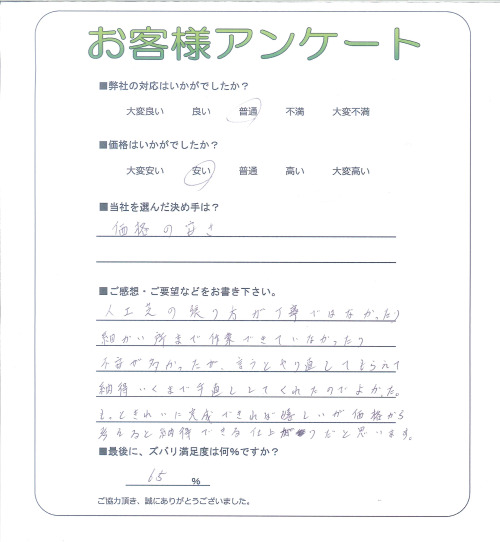 お客様アンケート
■弊社の対応はいかがでしたか？
大変良い 良い 普通 不満 大変不満
■価格はいかがでしたか？
大変安い 安い 普通 高い 大変高い
■当社を選んだ決め手は？
価格の安さ
■ご感想・ご要望などをお書き下さい。
人工芝の張り方が丁寧ではなかったり
細かい所まで作業できていなかったり
不安が多かったが、言うとやり直してもらえて
納得いくまで手直ししてくれたのでよかった。
もっときれいに完成できれば嬉しいが価格から
考えると納得できる仕上がりだと思います。
■最後に、ズバリ満足度は何%ですか？
65 %
ご協力頂き、誠にありがとうございました。